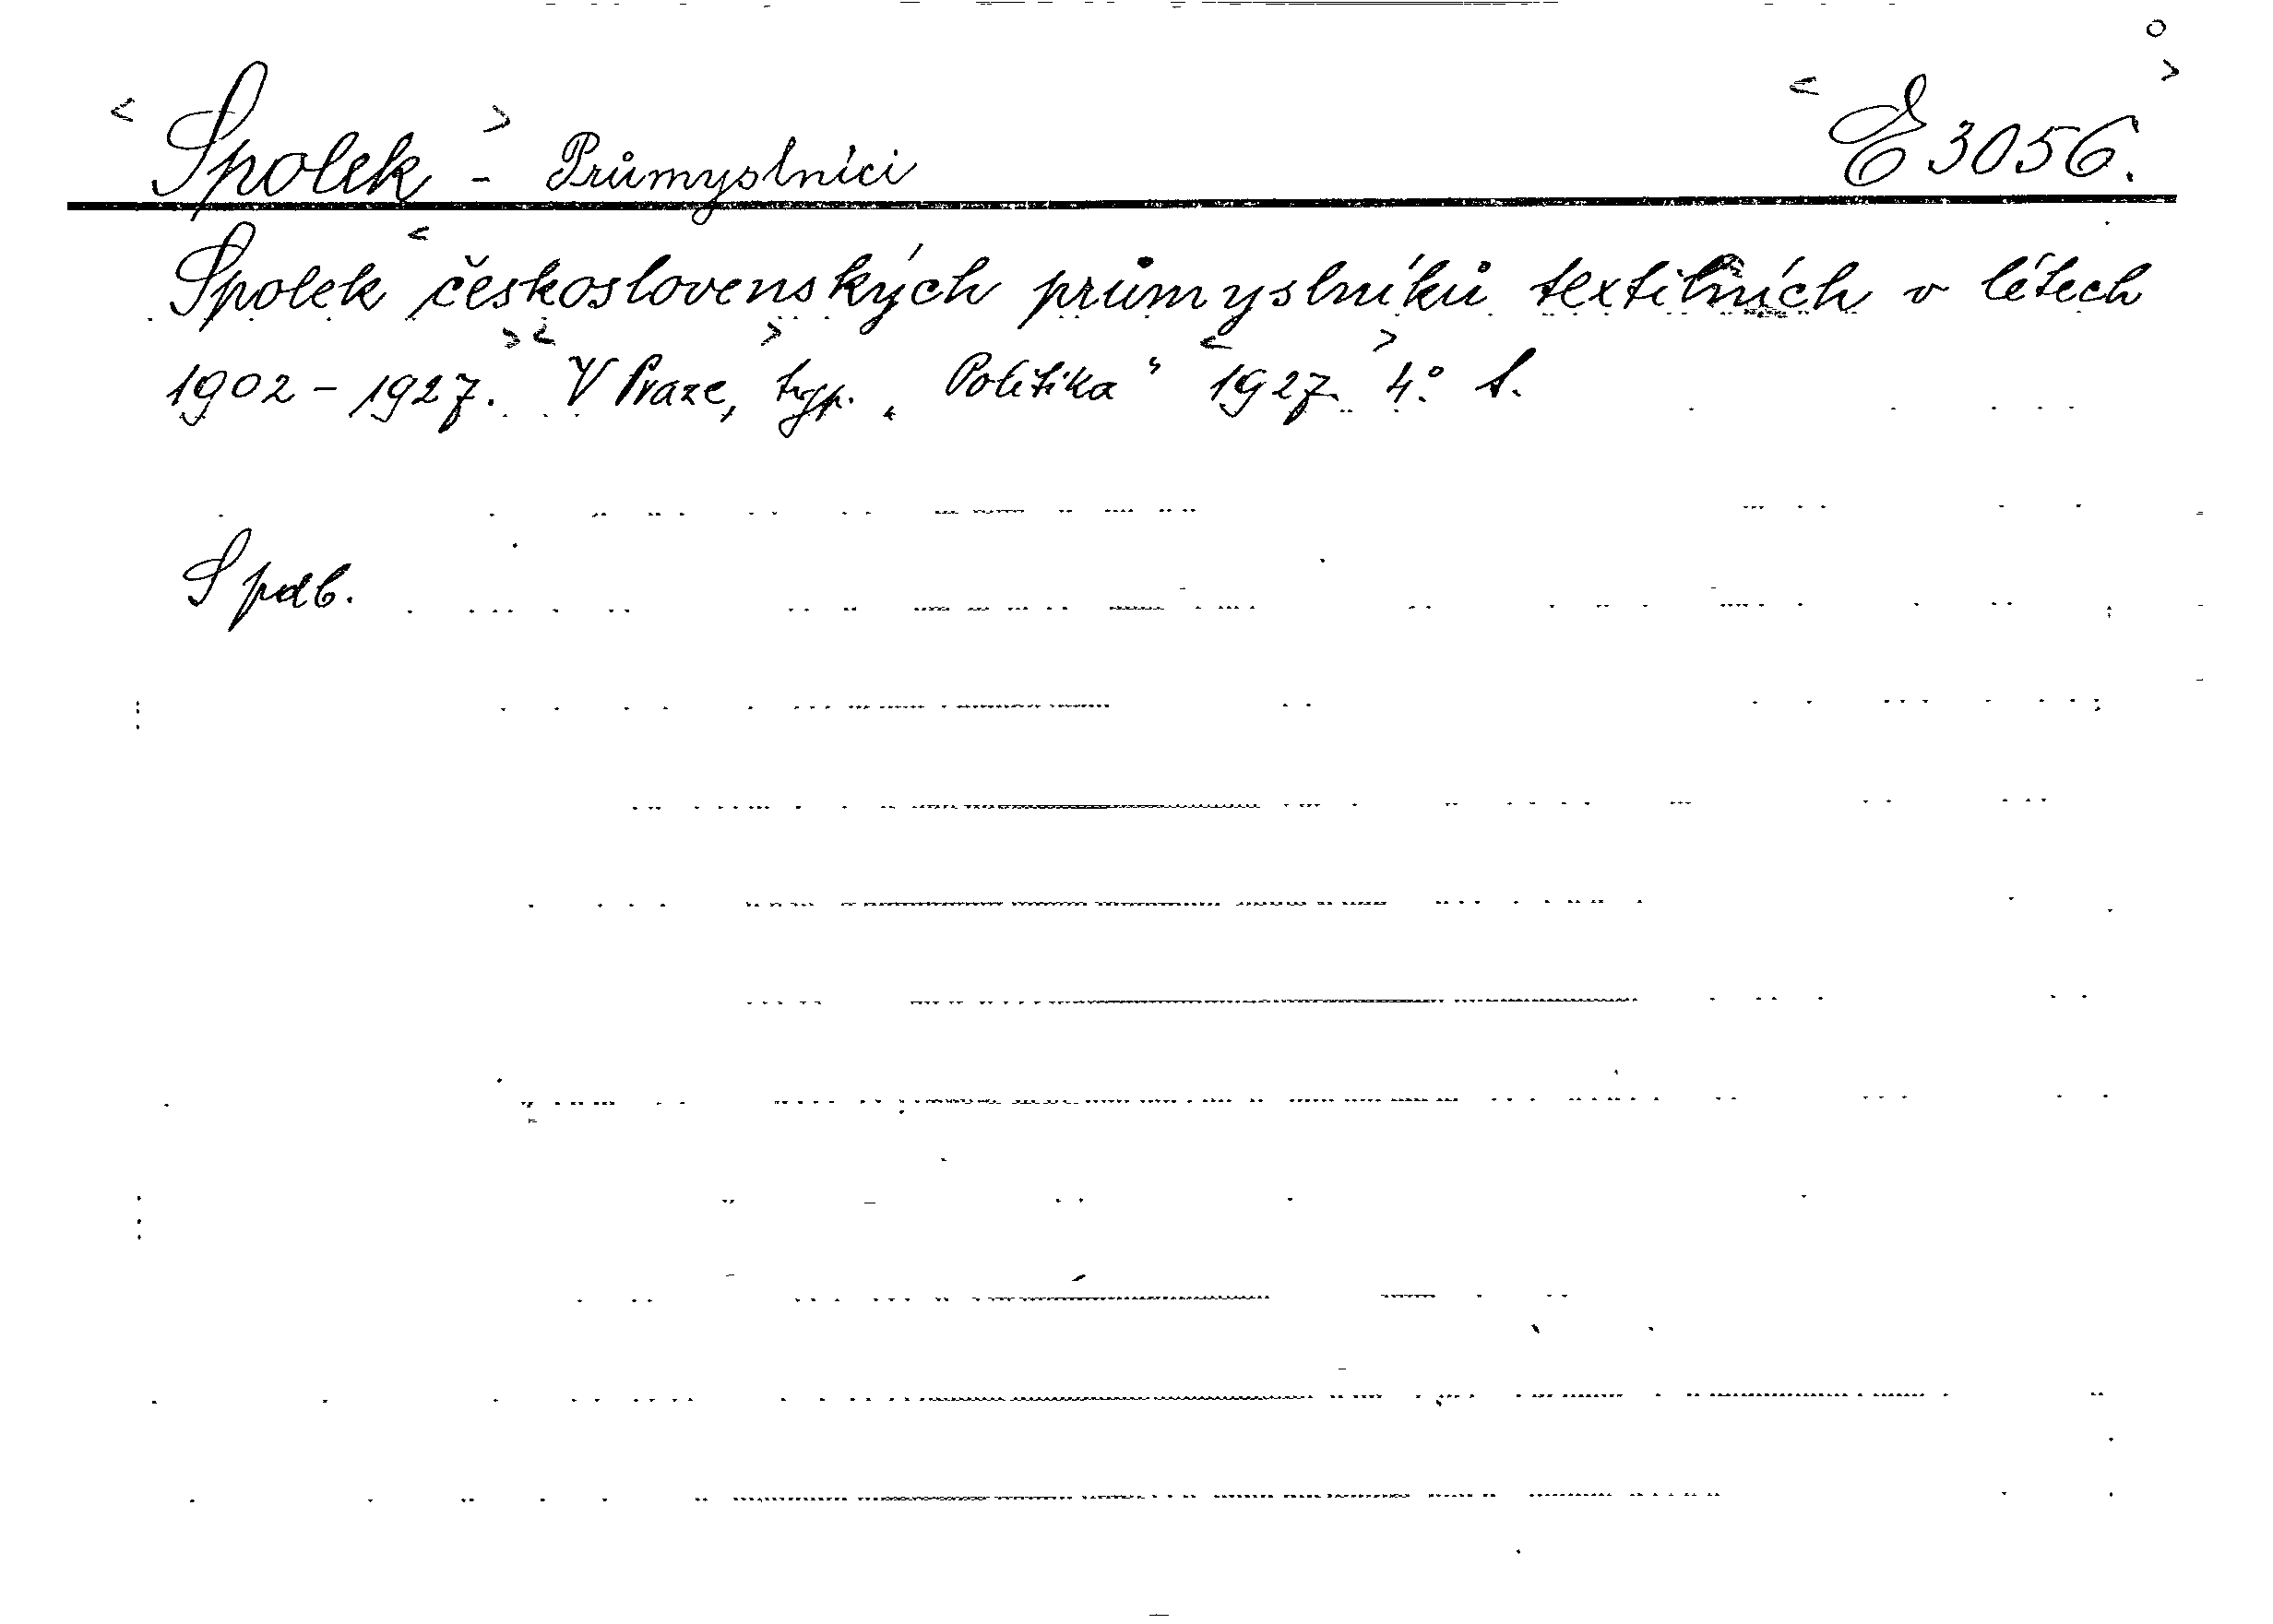 <Spolek> - Průmyslníci <E 3056.>
Spolek <československých průmyslníků textilních v létech
1902 - 1927.> <V Praze,> typ. „Politika“ <1927.> 4.° S.
S pdb.